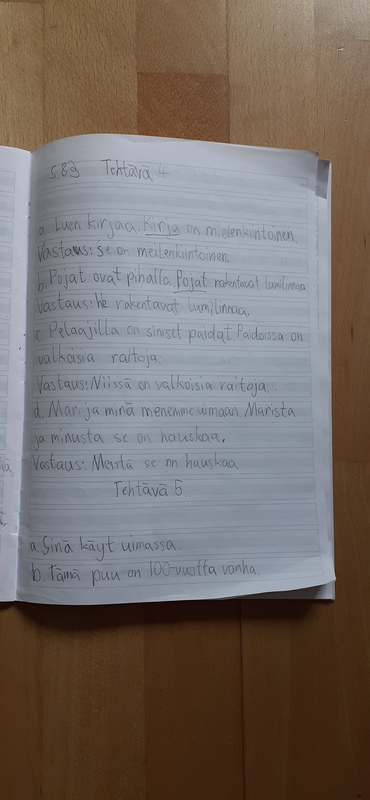 S.83 Tehtävä 4
a. Luen kirjaa. Kirja on mielenkiintoinen.
Vastaus: se on meilenkiintoinen.
b. Pojat ovat pihalla. Pojat rakentavat lumilinnaa
Vastaus: He rakentavat lumilinnaa.
c Pelaajilla on siniset paidat. Paidoissa on
valkoisia raitoja.
Vastaus: Niissä on valkoisia raitoja.
d. Mari ja minä menemme uimaan. Marista
ja minusta se on hauskaa.
Vastaus: Meistä se on hauskaa.
Tehtävä 5.
a. Sinä käyt uimassa.
b. Tämä puu on 100-vuotta vanha.